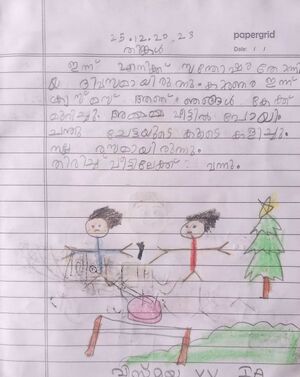 25.12.2023
papergrid
Date: / /
തിങ്കൾ
ഇന്ന് എനിക്ക് സന്തോഷം തോന്നി
യ ദിവസമായിരുന്നു. കാരണം ഇന്ന്
ക്രിസ്മസ് ആണ്. ഞങ്ങൾ കേക്ക്
മുറിച്ചു. അമ്മമ്മ വീട്ടിൽ പോയി.
ചന്തു ചേട്ടയുടെ കൂടെ കളിച്ചു.
നല്ല രസമായിരുന്നു.
തിരിച്ച് വീട്ടിലേക്ക് വന്നു.
വിസ്മയ V V IA